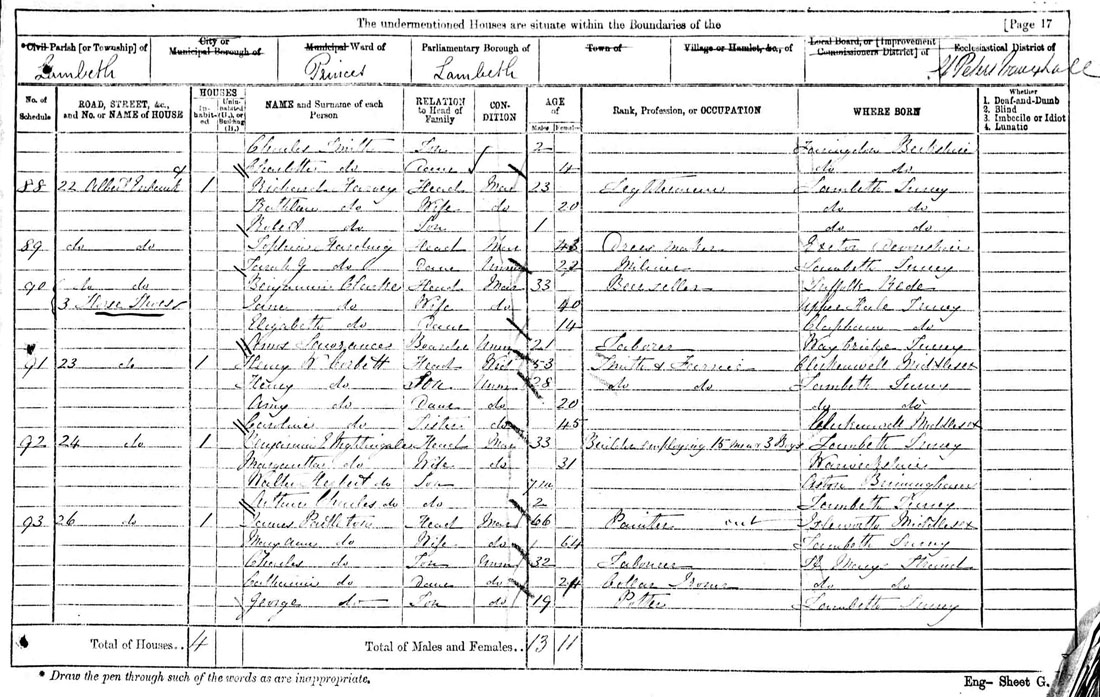 The undermentioned Houses are situate within the Boundaries of the [Page 17
*Civil Parish [or Township] of City or Municipal Borough of Municipal Ward of Parliamentary Borough of Town of Village or Hamlet, &c., of Local Board, or [Improvement Commissioners District] of Ecclesiastical District of
Lambeth Princes Lambeth St Peters Vauxhall
No. of Schedule ROAD, STREET, &c., and No. or NAME of HOUSE HOUSES Inhabited Uninhabited (U.), or Building (B.) NAME and Surname of each Person RELATION to Head of Family CONDITION AGE of Males Females Rank, Profession, or OCCUPATION WHERE BORN Whether 1. Deaf-and-Dumb 2. Blind 3. Imbecile or Idiot 4. Lunatic
Charles Smith Son 2 Farringdon Berkshire
Charlotte do Daur 4 do do
88 22 Albert Embank 1 Richard Harvey Head Mar 23 Lambeth Surrey
Kathleen do Wife do 20 do do
Robert do Son 1 do do
89 do do Sophia Farding Head 43 Dress maker Exeter Devonshire
Sarah J do Daur Unm 22 Miliner Lambeth Surrey
90 do do Benjamin Clarke Head Mar 33 Beerseller Suffolk
3 Horse Shoes Jane do Wife do 40 Surrey
Elizabeth do Daur 14 Clapham do
Amos Boarder Unm 21 Laborer Waybridge Surrey
91 23 do 1 Henry W Corbett Head Wid 53 Smith & Farrier Clerkenwell Middlesex
Henry do Son Unm 28 do do Lambeth Surrey
Amy do Daur do 20 do do
Caroline do Sister do 45 Clerkenwell Middlesex
92 24 do 1 Benjamin E Nightingale Head Mar 33 Builder employing 15 men 3 Boys Lambeth Surrey
Margaretta do Wife do 31 Warwickshire
Walter Herbert do Son 7m Aston Birmingham
Arthur Charles do do 2 Lambeth Surrey
93 26 do 1 James Head Mar 66 Painter out Isleworth Middlesex
Mary Ann do Wife do 64 Lambeth Surrey
Charles do Son Unm 32 Labourer St Mary Strand
Catherine do Daur do 24 do do
George do Son do 19 Potter Lambeth Surrey
Total of Houses.. 4 Total of Males and Females.. 13 11
* Draw the pen through such of the words as are inappropriate. Eng- Sheet G.